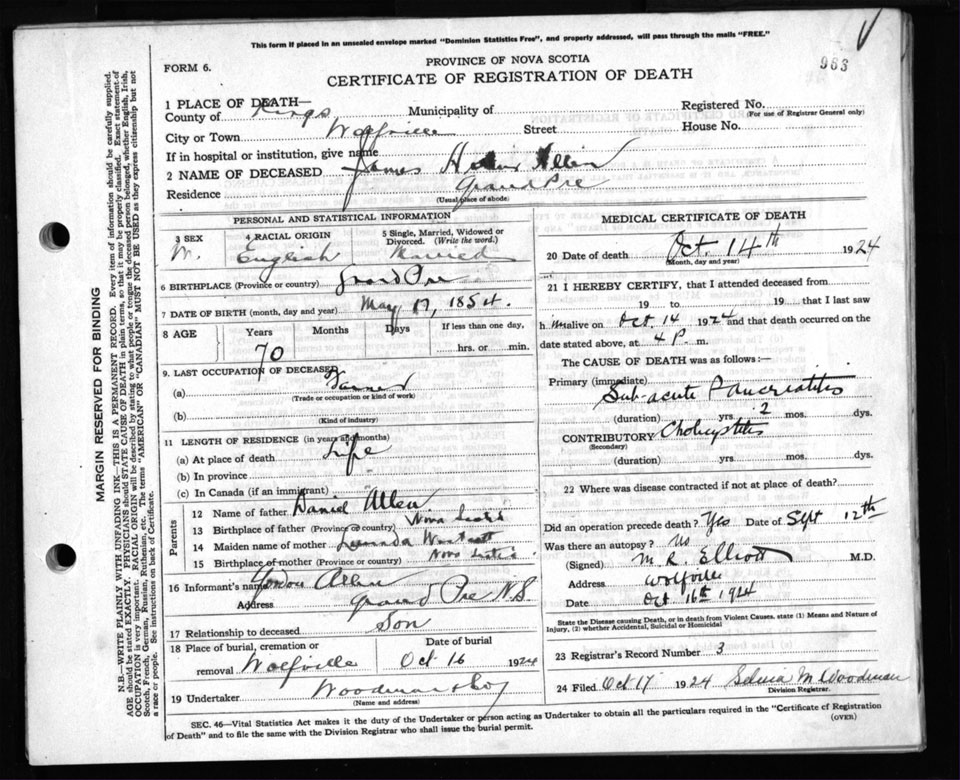 This form if placed in an unsealed envelope marked "Dominion Statistics Free", and properly addressed, will pass through the mails "FREE."
983
FORM 6.
PROVINCE OF NOVA SCOTIA
CERTIFICATE OF REGISTRATION OF DEATH
1 PLACE OF DEATH—
County of Kings Municipality of Registered No.
(For use of Registrar General only)
City or Town Wolfville Street House No.
If in hospital or institution, give name
2 NAME OF DECEASED James Allen
Residence Grand Pre
(Usual place of abode)
PERSONAL AND STATISTICAL INFORMATION
3 SEX 4 RACIAL ORIGIN 5 Single, Married, Widowed or Divorced. (Write the word.)
M. English Married
6 BIRTHPLACE (Province or country) Grand Pre
7 DATE OF BIRTH (month, day and year) May 17, 1854.
8 AGE Years Months Days If less than one day,
70 hrs. or min.
9. LAST OCCUPATION OF DECEASED
(a) Farmer
(Trade or occupation or kind of work)
(b)
(Kind of industry)
11 LENGTH OF RESIDENCE (in years and months)
(a) At place of death Life
(b) In province
(c) In Canada (if an immigrant)
Parents
12 Name of father Daniel Allen
13 Birthplace of father (Province or country) Nova Scotia
14 Maiden name of mother
15 Birthplace of mother (Province or country) Nova Scotia
16 Informant's name Allen
Address Grand Pre N.S.
17 Relationship to deceased Son
18 Place of burial, cremation or removal Wolfville
Date of burial Oct 16 1924
19 Undertaker Woodman & Co
(Name and address)
MEDICAL CERTIFICATE OF DEATH
20 Date of death Oct. 14th 1924
(Month, day and year)
21 I HEREBY CERTIFY, that I attended deceased from
19 to 19 that I last saw
h im alive on Oct. 14 1924 and that death occurred on the
date stated above, at 4 P. m.
The CAUSE OF DEATH was as follows:—
Primary (immediate) Sub-acute Pancreatitis
(duration) yrs. 2 mos. dys.
CONTRIBUTORY
(Secondary)
(duration) yrs. mos. dys.
22 Where was disease contracted if not at place of death?
Did an operation precede death? Yes Date of Sept 12th
Was there an autopsy? No
(Signed) M. R. Elliott M.D.
Address Wolfville
Date Oct 16th 1924
State the Disease causing Death, or in death from Violent Causes, state (1) Means and Nature of
Injury, (2) whether Accidental, Suicidal or Homicidal
23 Registrar's Record Number 3
24 Filed Oct 17 1924 M Woodman
Division Registrar.
SEC. 46—Vital Statistics Act makes it the duty of the Undertaker or person acting as Undertaker to obtain all the particulars required in the "Certificate of Registration
of Death" and to file the same with the Division Registrar who shall issue the burial permit.
(OVER)
MARGIN RESERVED FOR BINDING
N.B.—WRITE PLAINLY WITH UNFADING INK—THIS IS A PERMANENT RECORD. Every item of information should be carefully supplied.
AGE should be stated EXACTLY. PHYSICIANS should STATE CAUSE OF DEATH in plain terms, so that it may be properly classified. Exact statement of
OCCUPATION is very important. RACIAL ORIGIN will be described by stating to what people or tongue the deceased person belonged, whether English, Irish,
Scotch, French, German, Russian, Ruthenian, etc. The terms "AMERICAN" or "CANADIAN" MUST NOT BE USED as they express citizenship but not
a race or people. See instructions on back of Certificate.